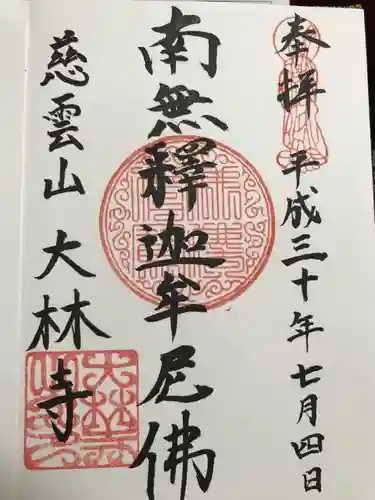 奉拝 平成三十年七月四日
南無釋迦牟尼佛
慈雲山 大林寺